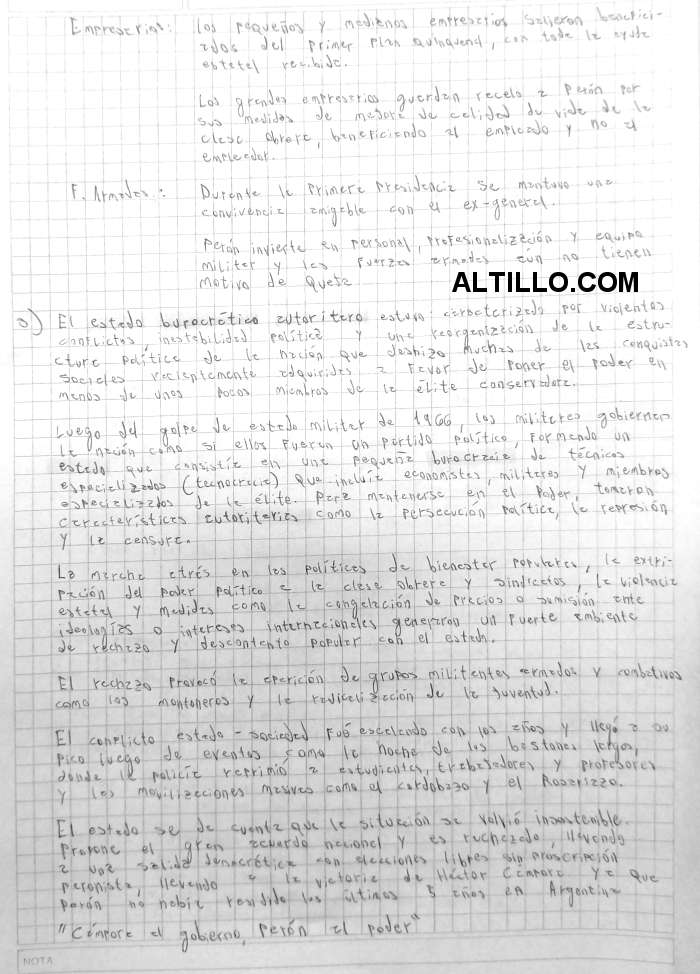 Empresarios: Los pequeños y medianos empresarios salieron benefici-
ados del primer plan quinquenal, con toda la ayuda
estatal recibida.
Los grandes empresarios guardan recelo a Perón por
sus medidas de mejora de calidad de vida de la
clase obrera, beneficiendo al empleado y no al
empleador.
F. Armadas: Durante la primera presidencia se mantuvo una
convivencia amigable con el ex-general.
Perón invierte en personal, profesionalización y equipo
militar y las fuerzas armadas aún no tienen
motivo de queja
ALTILLO.COM
3) El estado burocrático autoritario estuvo caracterizado por violentos
conflictos, inestabilidad política y una reorganización de la estru-
ctura política de la nación que deshizo muchas de las conquistas
sociales recientemente adquiridas a favor de poner el poder en
manos de unos pocos miembros de la élite conservadora.
Luego del golpe de estado militar de 1966, los militares gobiernan
la nación como si ellos fueran un partido político, formando un
estado que consistía en una pequeña burocracia de técnicos
especializados (tecnocracia) que incluía economistas, militares y miembros
especializados de la élite. Para mantenerse en el poder, tomaron
características autoritarias como la persecución política, la represión
y la censura.
La marcha atrás en las políticas de bienestar populares, la extri-
pación del poder político a la clase obrera y sindicatos, la violencia
estatal y medidas como la congelación de precios o sumisión ante
ideologías o intereses internacionales generaron un fuerte ambiente
de rechazo y descontento popular con el estado.
El rechazo provocó la aparición de grupos militantes armados y combativos
como los montoneros y la radicalización de la juventud.
El conflicto estado-sociedad fué escalando con los años y llegó a su
pico luego de eventos como la noche de los bastones largos,
donde la policía reprimió a estudiantes, trabajadores y profesores
y las movilizaciones masivas como el cordobazo y el Rosariazo.
El estado se da cuenta que la situación se volvió insostenible.
Propone el gran acuerdo nacional y es rechazado, llevando
a una salida democrática con elecciones libres sin proscripción
peronista, llevando a la victoria de Héctor Cámpora ya que
Perón no había residido los últimos 5 años en Argentina
"Cámpora al gobierno, Perón al poder"
NOTA